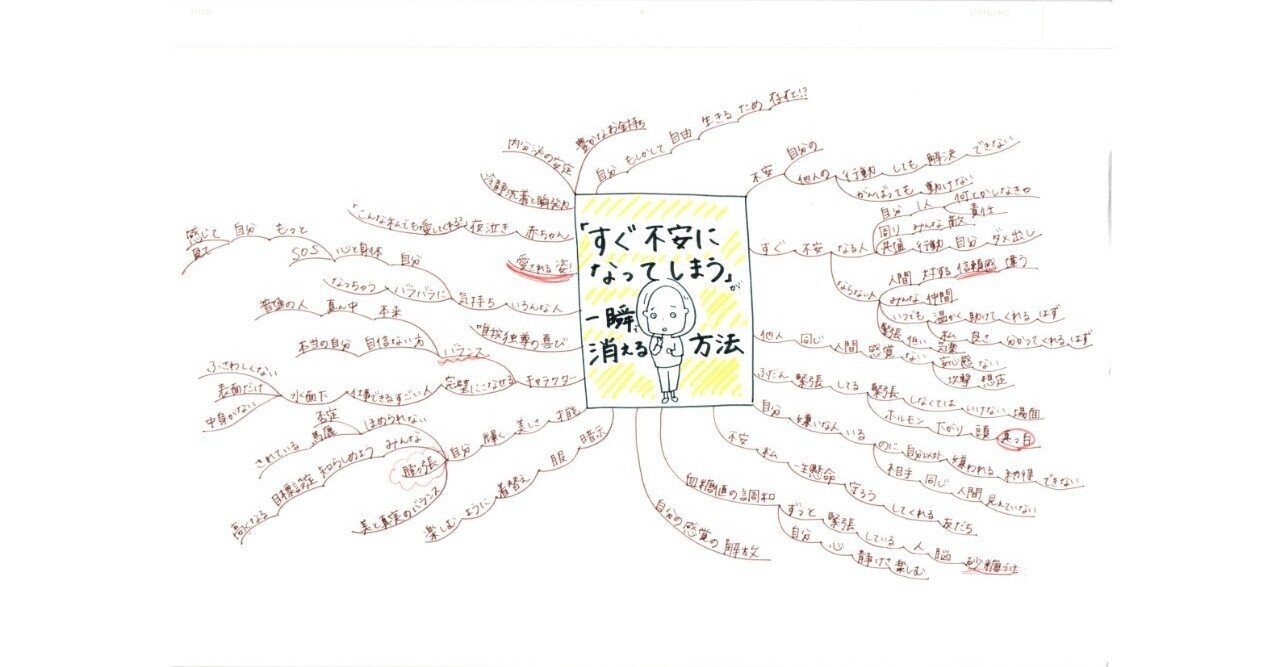 「すぐ不安に
なってしまう」が
一瞬で
消える方法
不安 自分の
他人の 行動 しても 解決 できない
がんばっても 動けない
すぐ 不安 なる人
自分 1人 何とかしなきゃ
責任
周り みんな 敵
共通 行動 自分 ダメ出し
ならない人
人間 対する 信頼感 違う
みんな 仲間
いつでも 温かく 助けて くれる はず
私 良さ 分かってくれる はず
他人 同じ 人間 感覚 ない
緊張 低い
安心感 ない
攻撃 想定
ふだん 緊張 してる
緊張 しなくては いけない 場面
ホルモン 下がり 頭 真っ白
自分 嫌いな人 いる のに
嫌われる 納得 できない
相手 同じ 人間 見れていない
不安 私 一生懸命 守ろう してくれる 友だち
血糖値の調和
ずっと 緊張 している 人 脳 砂糖づけ
自分 心 静けさ 楽しむ
自分の感覚の解放
暗示 服 着替え 楽しむように
才能 美しさ 輝く 自分
美と真実のバランス
膨っ張
みんな 知らしめよう 目標設定 高くなる
ほめられない
否定
馬鹿 されている
キャラクター 完璧にこなせる
仕事できるすごい人 水面下
ふさわしくない
表面だけ
中身がない
バランス
本来 真ん中 普通の人
自信ない方 本当の自分
唯我独尊の喜び
いろんな人 気持ち バラバラに なっちゃう
自分 心と身体 SOS
もっと 自分 感じて
見て
愛される姿!
赤ちゃん 夜泣き
冷静沈着と瞬発力
内分泌の安定
豊かなお金持ち
自分 もしかして 自由 生きる ため 存在!?